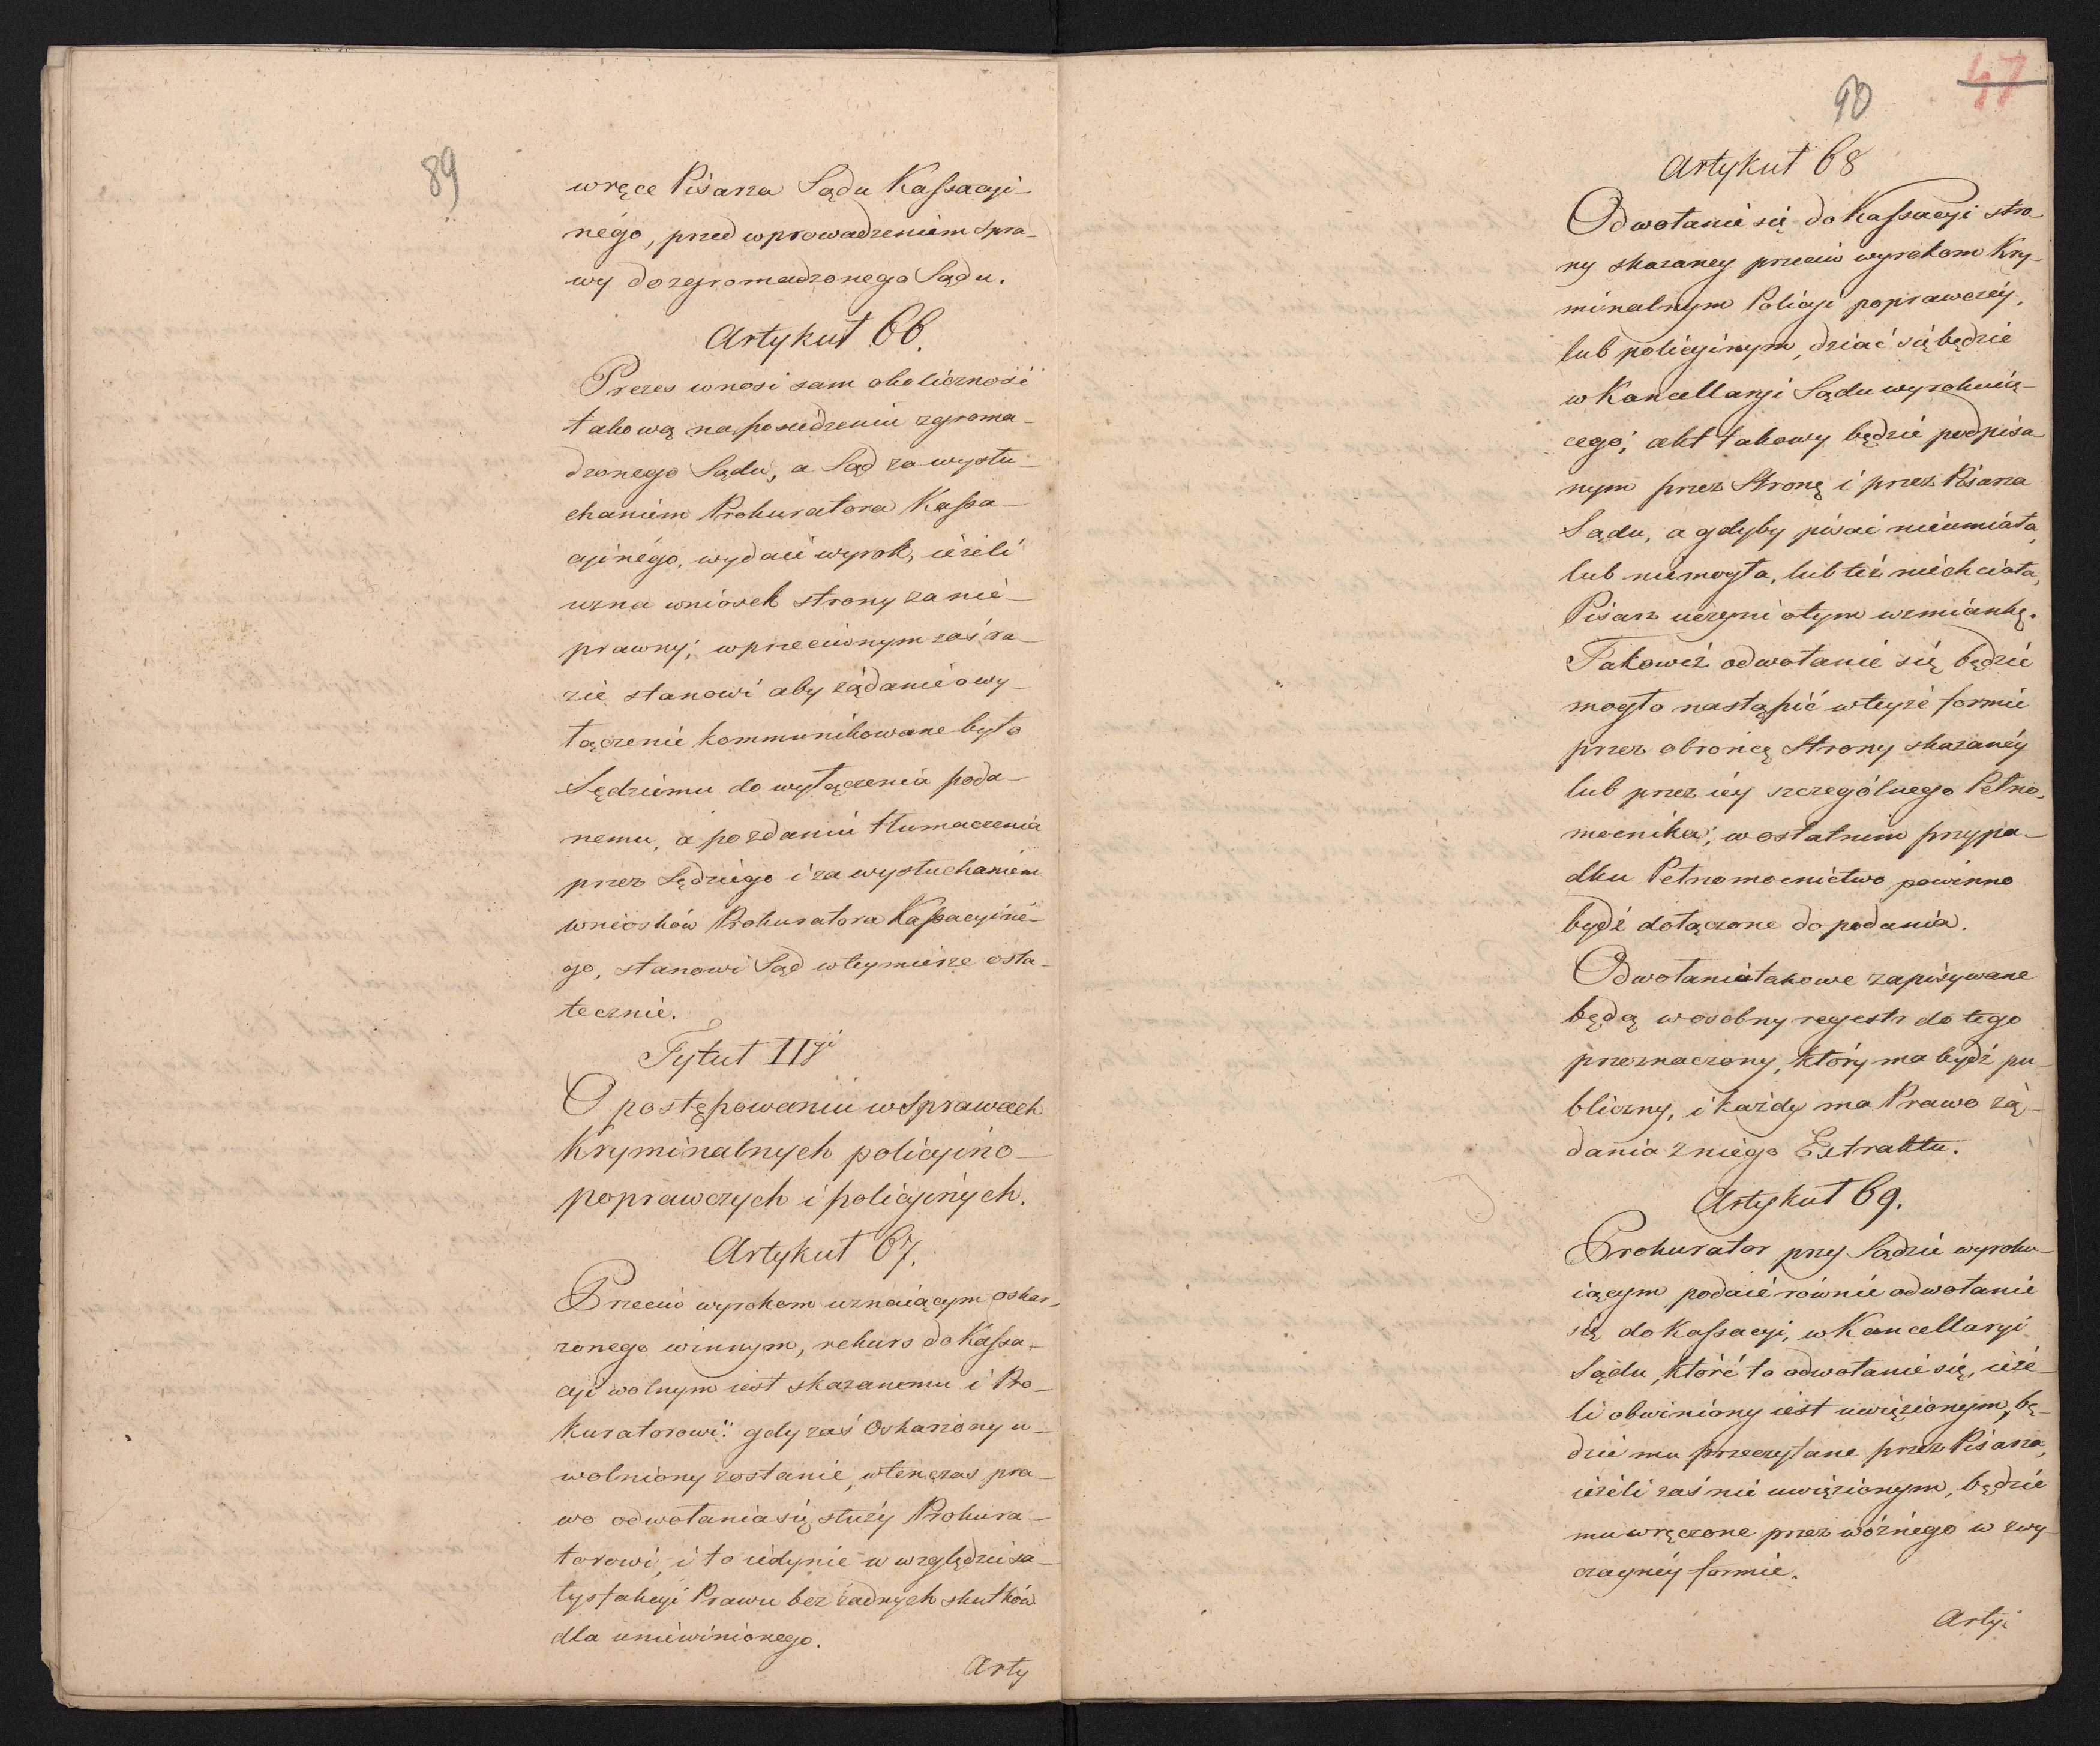 89
wręce Pisarza Sądu Kassacyi-
nego, przed wprowadzeniem Spra-
wy do zgromadzonego Sądu.
Artykuł 66.
Prezes wnosi sam okoliczność
takową na posiedzeniu zgroma-
dzonego Sądu, a Sąd za wysłu-
chaniem Prokuratora Kassa-
cyinégo, wydaie wyrok, ieżeli
uzna wniosek strony za nie-
prawny; w przeciwnym zaś ra-
zie stanowi aby żądanie o wy-
łączenie kommunikowane było
Sędziemu do wyłączenia poda-
nemu, a po zdaniu tłumaczenia
przez Sędziego i za wysłuchaniem
wniosków Prokuratora Kassacyine-
go, stanowi Sąd w tey mierze osta-
tecznie.
Tytuł IIgi
O postępowaniu w Sprawach
Kryminalnych policyino-
poprawczych i policyinych.
Artykuł 67.
Przeciw wyrokom uznaiącym oskar-
żonego winnym, rekurs do Kassa-
cyi wolnym iest skazanemu i Pro-
kuratorowi: gdy zaś Oskarżony u-
wolniony zostanie, wtenczas pra-
wo odwołania się służy Prokura-
torowi, i to iedynie w względzie sa-
tysfakcyi Prawu bez żadnych skutków
dla uniewinionego.
Arty
90
47
Artykuł 68
Odwołanie się do Kassacyi stro-
ny skazaney przeciw wyrokom Kry-
minalnym Policyi poprawczéy,
lub policyinym, dziać się będzie
w Kancellaryi Sądu wyrokuią-
cego; akt takowy będzie podpisa-
nym przez Stronę i przez Pisarza
Sądu, a gdyby pisać nieumiała,
lub niemogła, lub też niechciała,
Pisarz uczyni o tym wzmiankę.
Takoweż odwołanie się będzie
mogło nastąpić w teyże formie
przez obrońcę Strony skazanéy
lub przez iéy szczególnego Pełno-
mocnika; w ostatnim przypa-
dku Pełnomocnictwo powinno
bydź dołączone do podania.
Odwołania takowe zapisywane
będą w osobny regestr do tego
przeznaczony, który ma bydź pu-
bliczny, i każdy ma Prawo żą-
dania z niego Extraktu.
Artykuł 69.
Prokurator przy Sądzie wyroku-
iącym podaie równie odwołanie
się do Kassacyi, w Kancellaryi
Sądu, któré to odwołanie się, ieże-
li obwiniony iest uwięzionym, bę-
dzie mu przeczytane przez Pisarza,
ieżeli zaś nie uwięzionym, będzie
mu wręczone przez woźnégo w zwy-
czaynéy formie.
Arty: